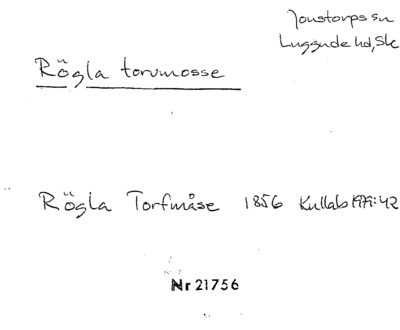 Jonstorps sn
Luggude hd, Sk
Rögla torvmosse
Rögla Torfmåse 1856 Kullab 1979:42
Nr 21756